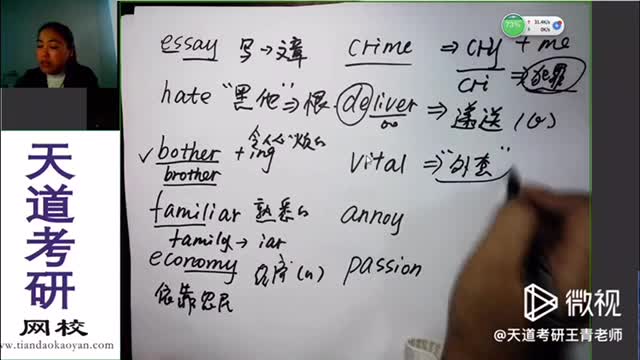 73%
31.4K/s
0K/s
essay 写→文章
crime ⇒ cry + me
cri ⇒ 犯罪
hate "黑他"⇒恨
deliver ⇒ 递送 (v)
✓ bother + ing 令人心烦的
brother
vital ⇒
familiar 熟悉的
family → iar
annoy
economy 经济 (n)
passion
依靠农民
天道考研
网校
www.tiandaokaoyan.com
微视
@天道考研王青老师